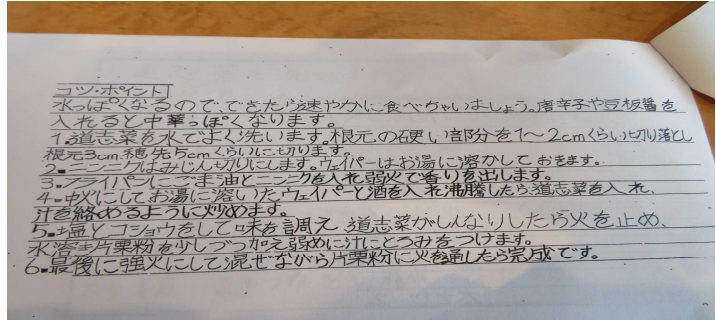 コツ・ポイント
水っぽくなるので、できたら速やかに食べちゃいましょう。唐辛子や豆板醤を
入れると中華っぽくなります。
1.道志菜を水でよく洗います。根元の硬い部分を1〜2cmくらい切り落とし
根元3cm穂先5cmくらいに切ります。
2.ニンニクはみじん切りにします。ウェイパーはお湯に溶かしておきます。
3.フライパンにごま油とニンニクを入れ弱火で香りを出します。
4.中火にしてお湯に溶いたウェイパーと酒を入れ沸騰したら道志菜を入れ、
汁を絡めるように炒めます。
5.塩とコショウをして味を調え、道志菜がしんなりしたら火を止め、
水溶き片栗粉を少しづつ加え弱めに汁にとろみをつけます。
6.最後に強火にして混ぜながら片栗粉に火を通したら完成です。